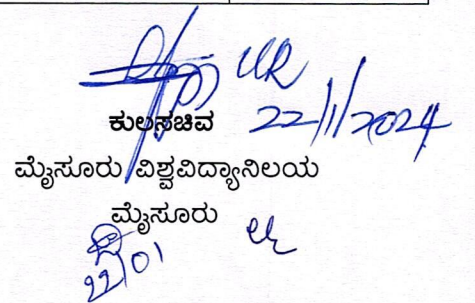 22/1/2024
ಕುಲಸಚಿವ
ಮೈಸೂರು ವಿಶ್ವವಿದ್ಯಾನಿಲಯ
ಮೈಸೂರು